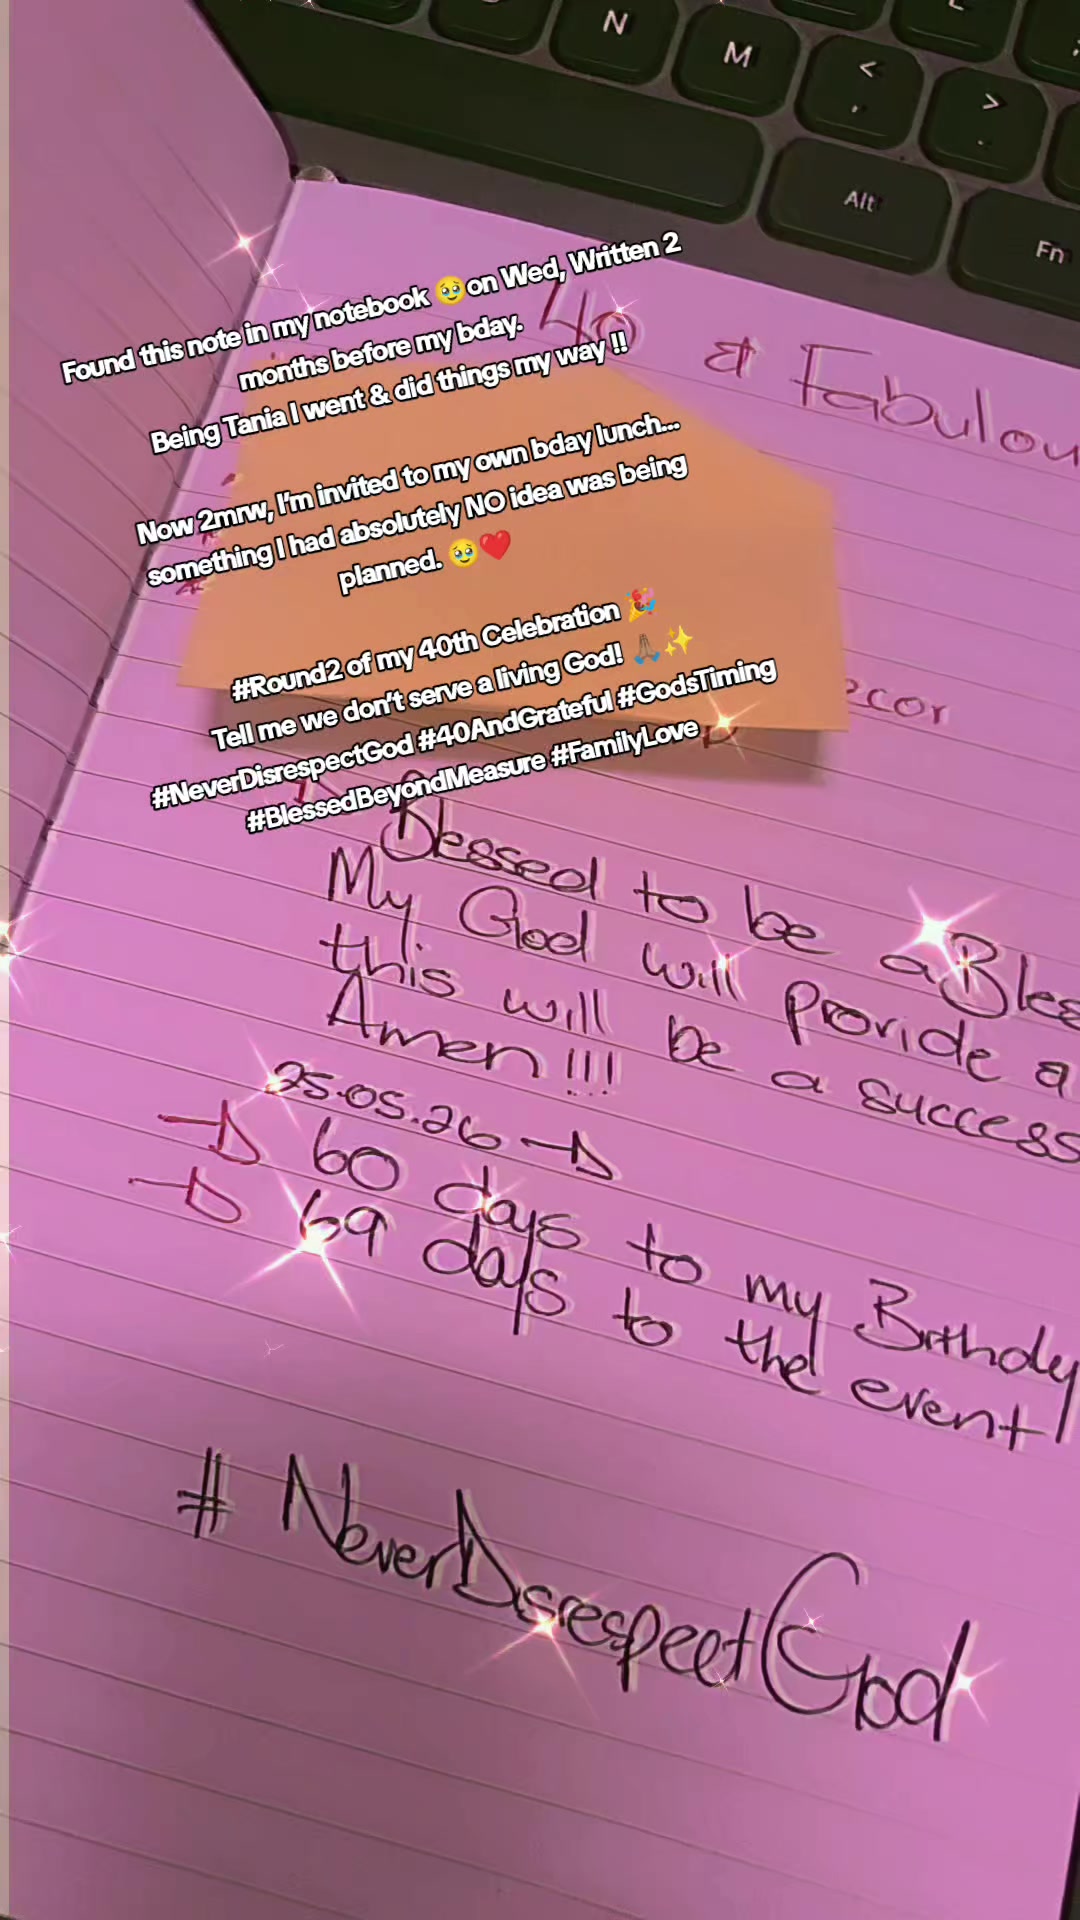 N
M
<
,
>
.
Alt
Fn
Found this note in my notebook 🥹on Wed, Written 2
months before my bday.
Being Tania I went & did things my way !!
Now 2mrw, I'm invited to my own bday lunch...
something I had absolutely NO idea was being
planned. 🥹❤️
#Round2 of my 40th Celebration 🎉
Tell me we don't serve a living God! 🙏🏾✨
#NeverDisrespectGod #40AndGrateful #GodsTiming
#BlessedBeyondMeasure #FamilyLove
40 & Fabulou
ecor
Blessed to be a Bles
My God will provide a
this will be a success
Amen !!!
25.05.26
60 days to my Birthdy
69 days to the event
# NeverDisrespectGod